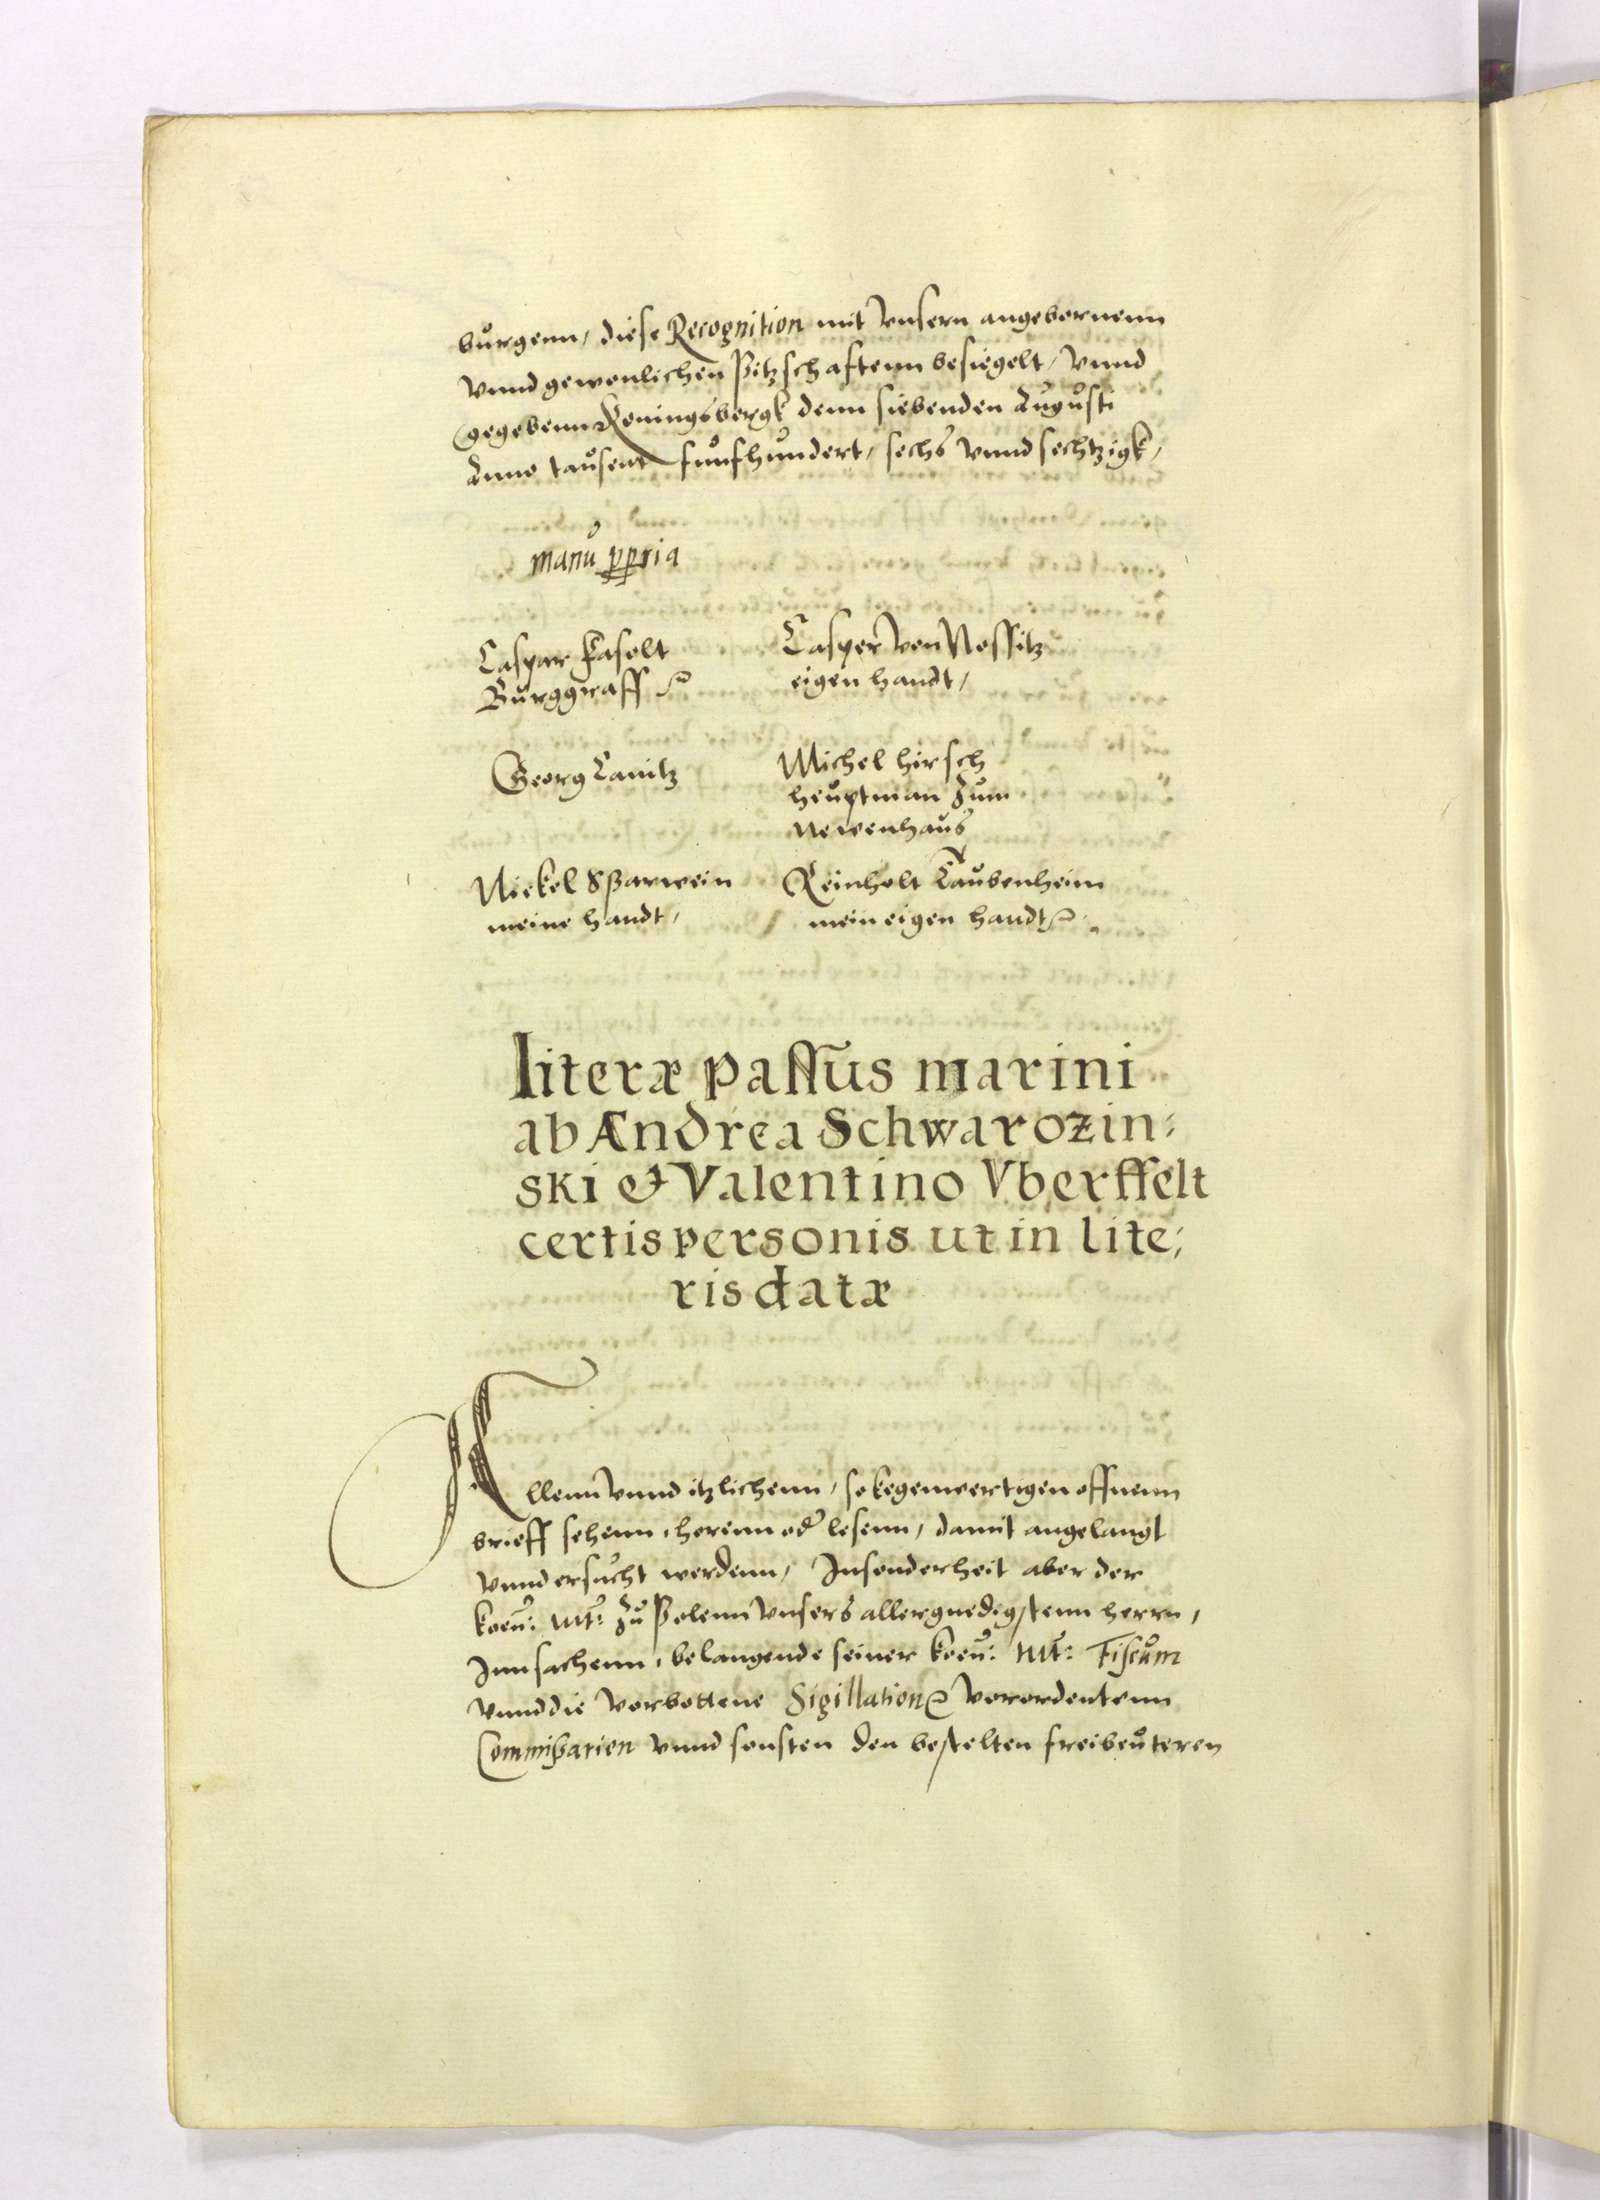 burgenn, diese Recognition mit Unsern angebornenn
vnnd gewonlichen Pitzschaftenn besiegelt, vnnd
gegebenn Koningsbergk denn siebenden Augusti
Anno tausent funfhundert, sechs vnnd sechtzigk,
manu ppria
Caspar Faselt
Burggraff
Casper von Nossitz
eigen handt,
Georg Canitz
Michel hirsch
heuptman zum
Newenhaus
Nickel Sparwein
meine handt,
Reinholt Taubenheim
mein eigen handt
literæ passus marini
ab Andrea Schwarozin:
ski & Valentino Vberffelt
certis personis ut in lite:
ris datæ
Allenn vnnd itzlichenn, so kegenwertigen offnenn
brieff sehenn, horenn oder lesenn, damit angelangt
vnnd ersucht werdenn, Insonderheit aber der
koen: Mt: zu Polenn vnsers allergnedigstenn herrn,
Inn sachenn, belangende seiner koen: Mt: Fiscum
vnnd die verbottene Sigillation verordentenn
Commißarien vnnd sonsten den bestelten freibeuteren